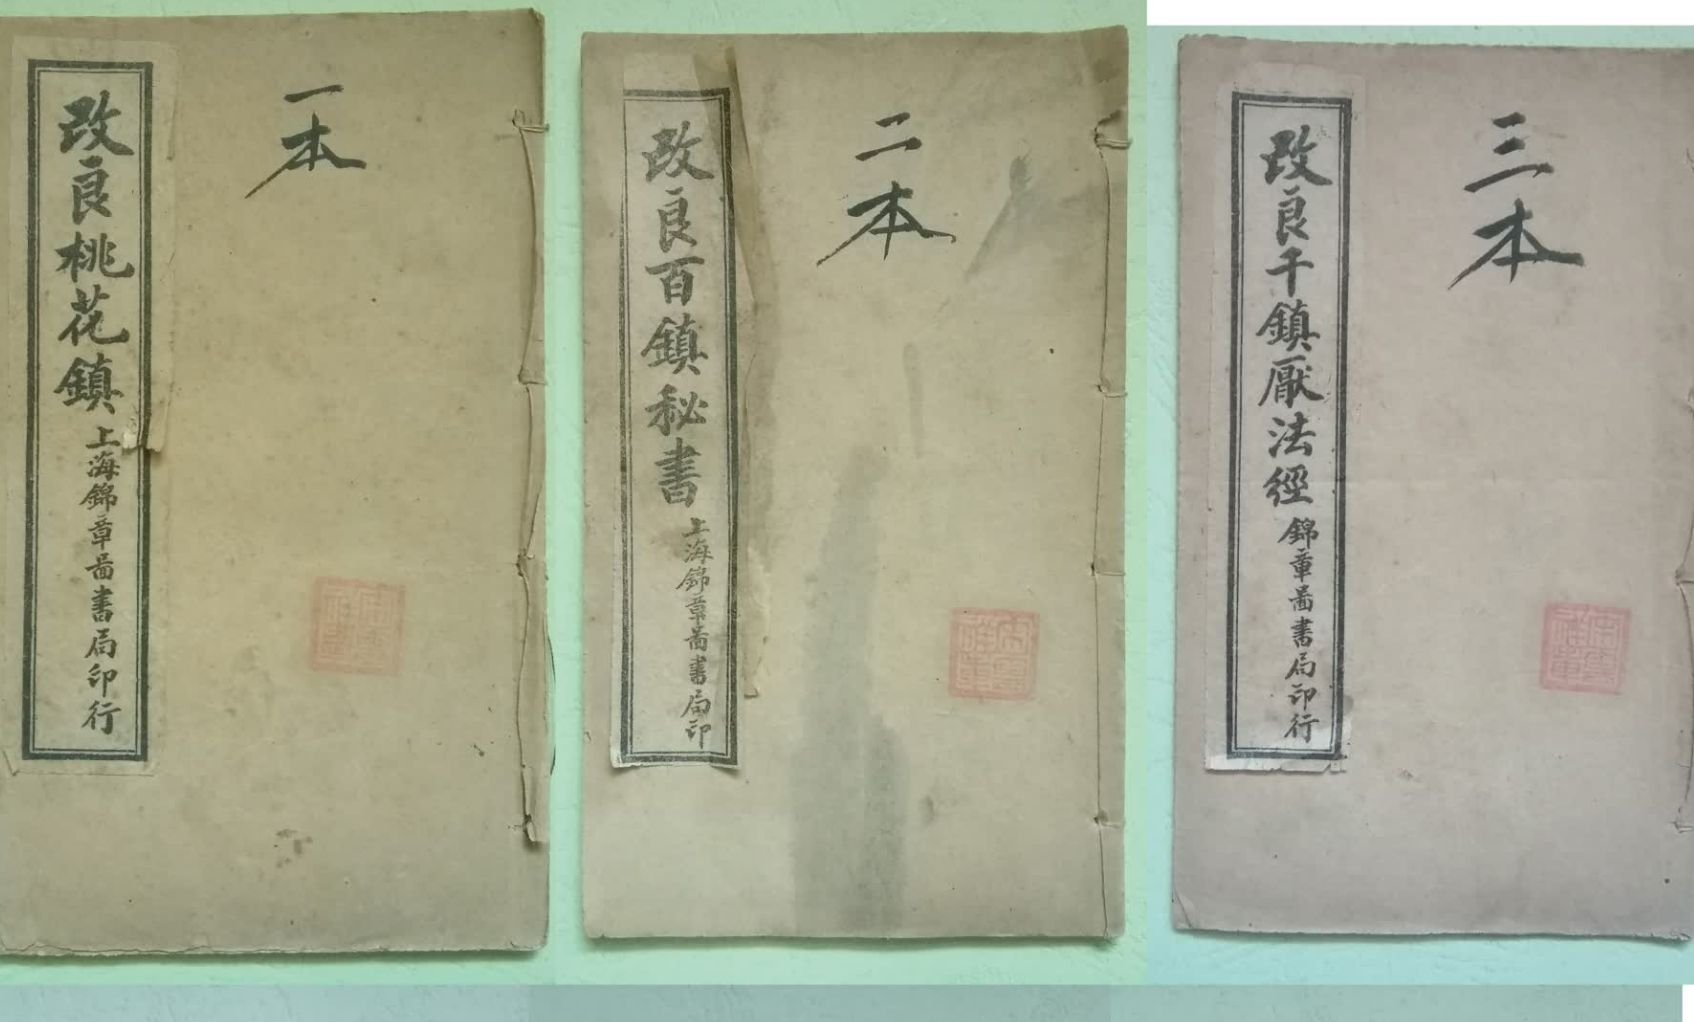 改良桃花鎮
上海錦章啚書局印行
一本
改良百鎮秘書
上海錦章啚書局印
二本
改良千鎮厭法經
錦章啚書局印行
三本